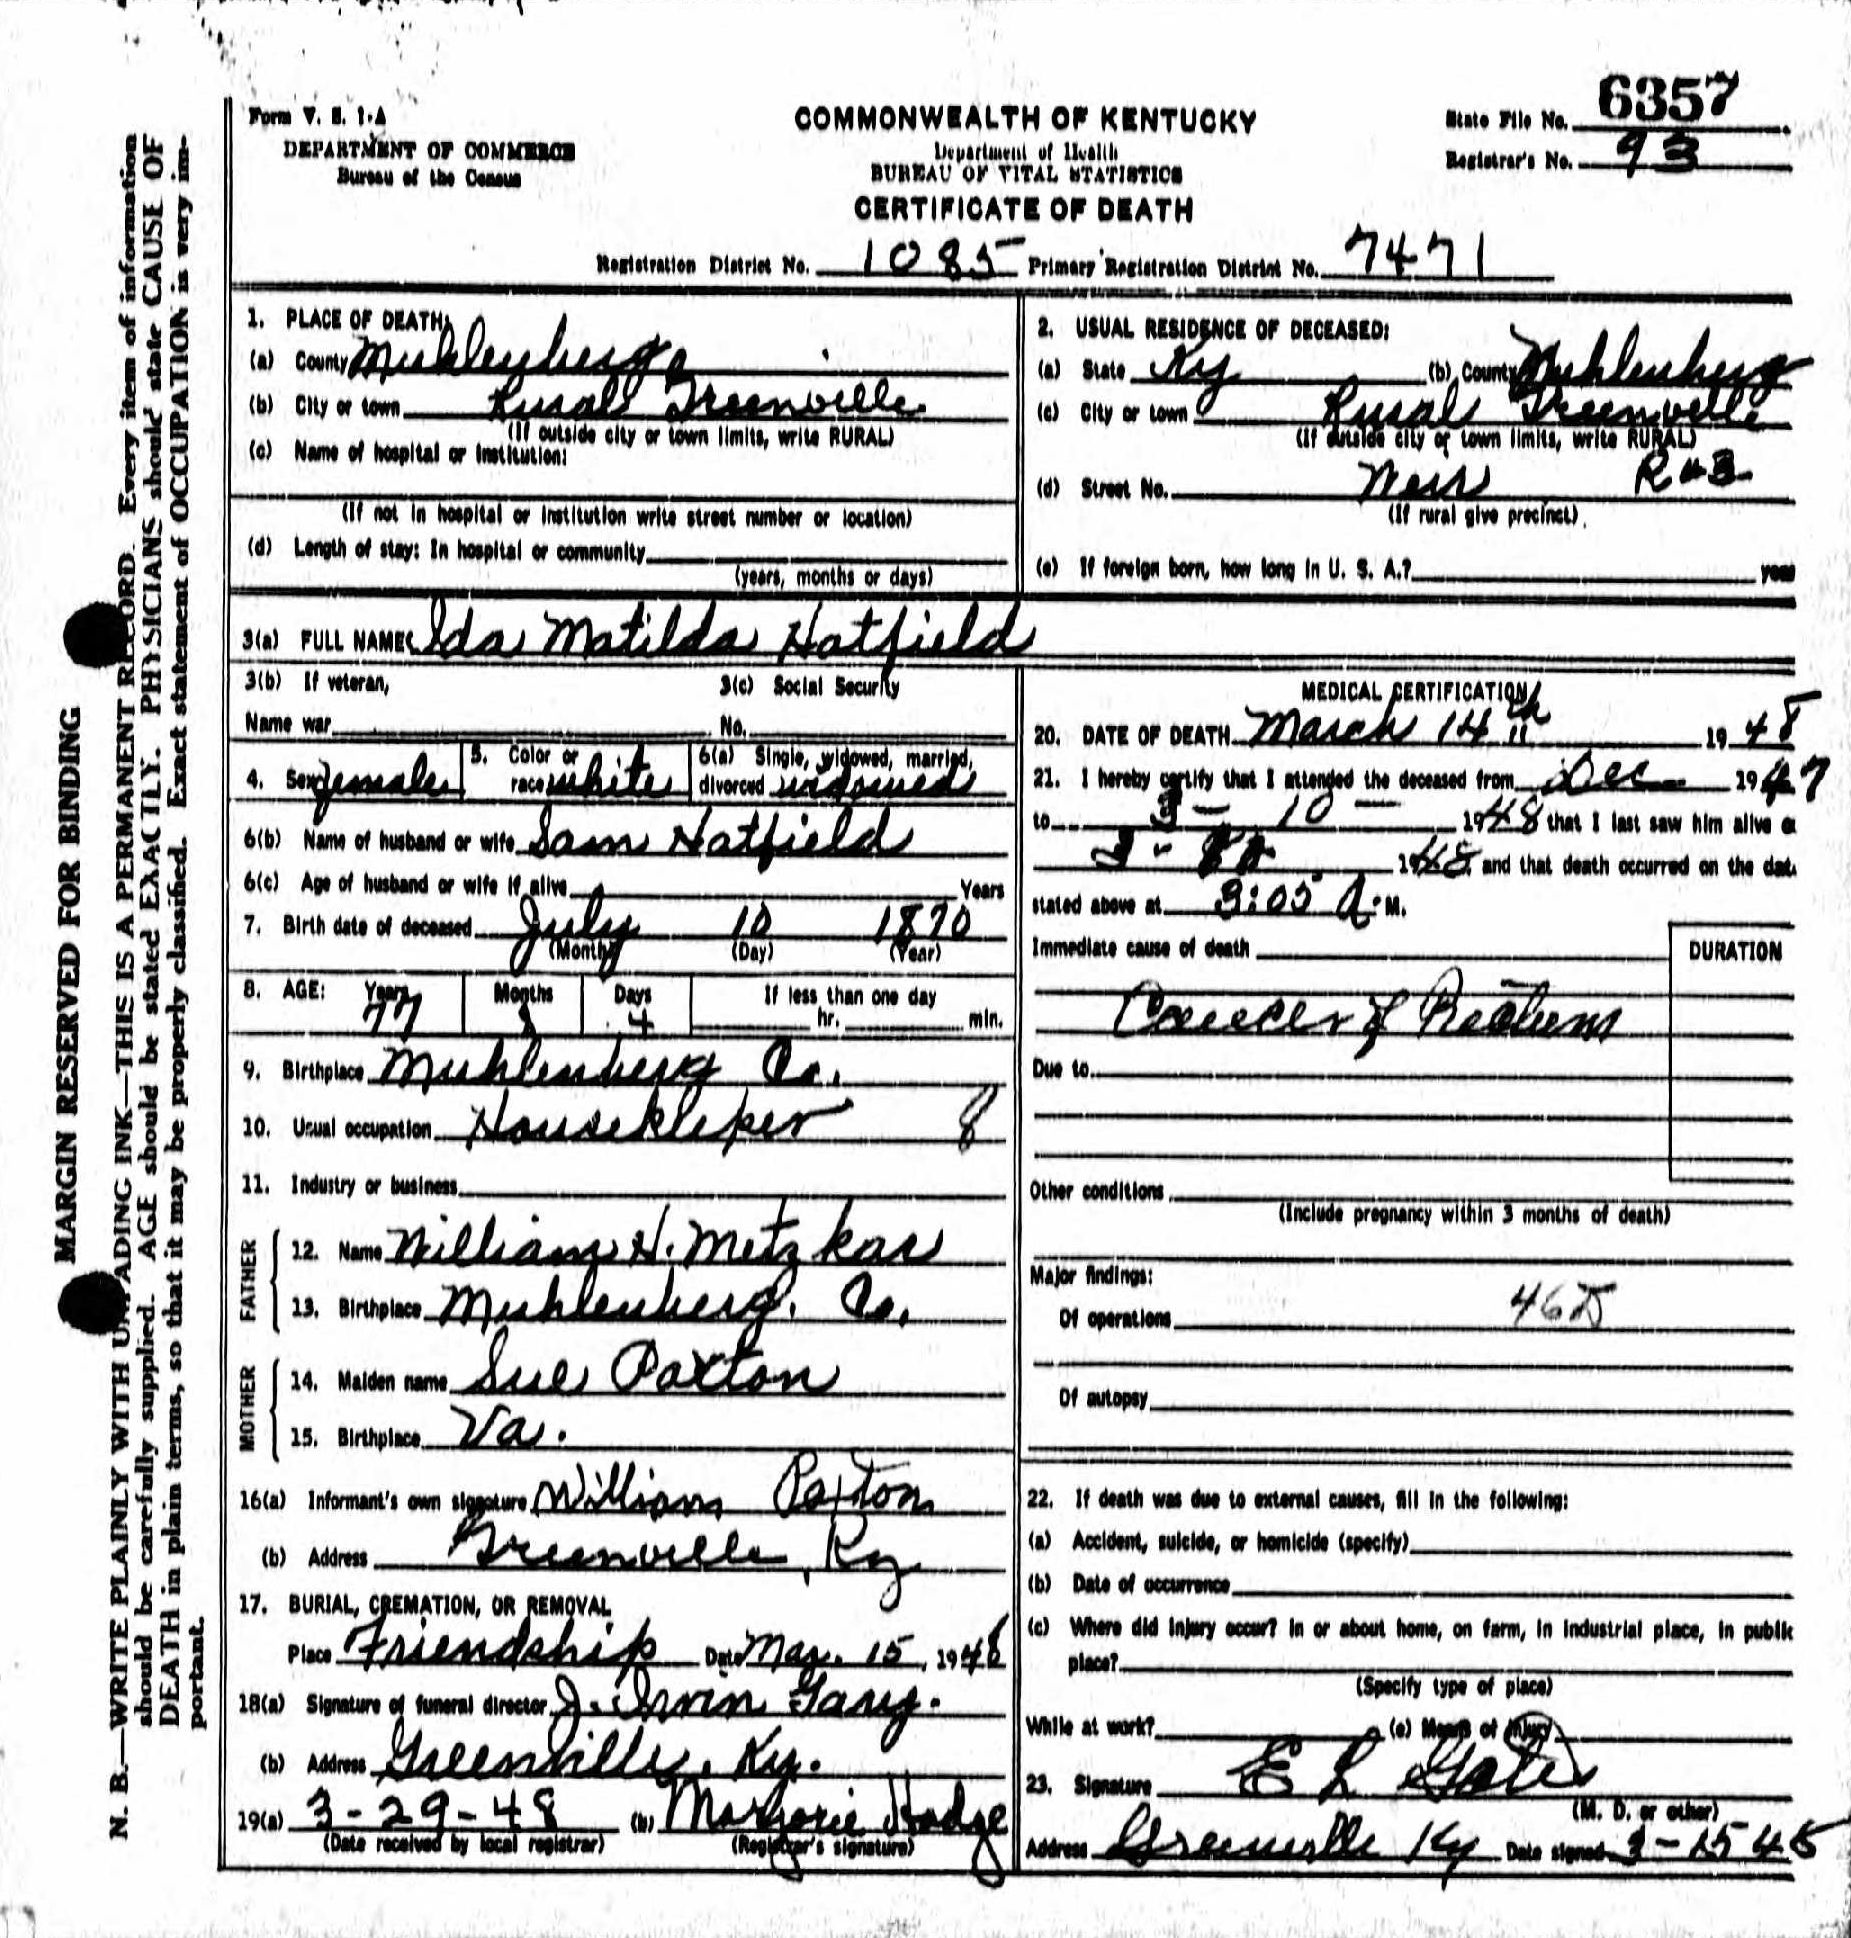 6357
Form V. S. 1-A
COMMONWEALTH OF KENTUCKY
State File No.
DEPARTMENT OF COMMERCE
Department of Health
Registrar's No. 93
Bureau of the Census
BUREAU OF VITAL STATISTICS
CERTIFICATE OF DEATH
Registration District No. 1085 Primary Registration District No. 7471
1. PLACE OF DEATH:
(a) County Muhlenberg
(b) City or town Rural Greenville
(If outside city or town limits, write RURAL)
(c) Name of hospital or institution:
(If not in hospital or institution write street number or location)
(d) Length of stay: In hospital or community
(years, months or days)
2. USUAL RESIDENCE OF DECEASED:
(a) State Ky (b) County Muhlenberg
(c) City or town Rural Greenville
(If outside city or town limits, write RURAL)
(d) Street No. R#3
(If rural give precinct)
(e) If foreign born, how long in U. S. A.? years
3(a) FULL NAME Ida Matilda Hatfield
3(b) If veteran, 3(c) Social Security
Name war No.
4. Sex female 5. Color or race white 6(a) Single, widowed, married, divorced widowed
6(b) Name of husband or wife Sam Hatfield
6(c) Age of husband or wife if alive Years
7. Birth date of deceased July 10 1870
(Month) (Day) (Year)
8. AGE: Years Months Days If less than one day
77 8 4 hr. min.
9. Birthplace Muhlenberg Co.
10. Usual occupation Housekeeper 8
11. Industry or business
FATHER
12. Name William H. Metzkar
13. Birthplace Muhlenberg. Co.
MOTHER
14. Maiden name Sue Paxton
15. Birthplace Va.
16(a) Informant's own signature William Paxton
(b) Address Greenville, Ky
17. BURIAL, CREMATION, OR REMOVAL
Place Friendship Date Mar. 15, 1948
18(a) Signature of funeral director J. Irvin Gary.
(b) Address Greenville, Ky.
19(a) 3-29-48 (b) Marjorie Hodge
(Date received by local registrar) (Registrar's signature)
MEDICAL CERTIFICATION
20. DATE OF DEATH March 14th 1948
21. I hereby certify that I attended the deceased from Dec 1947
to 3-10 1948 that I last saw him alive o
1948, and that death occurred on the dat
stated above at 3:05 A. M.
Immediate cause of death DURATION
Cancer of Rectum
Due to
Other conditions
(Include pregnancy within 3 months of death)
Major findings:
46D
Of operations
Of autopsy
22. If death was due to external causes, fill in the following:
(a) Accident, suicide, or homicide (specify)
(b) Date of occurrence
(c) Where did injury occur? In or about home, on farm, in industrial place, in public
place?
(Specify type of place)
While at work? (e) Means of injury
23. Signature E L Gates
(M. D. or other)
Address Greenville Ky Date signed 3-15 48
MARGIN RESERVED FOR BINDING
N. B.—WRITE PLAINLY WITH UNFADING INK—THIS IS A PERMANENT RECORD. Every item of information
should be carefully supplied. AGE should be stated EXACTLY. PHYSICIANS should state CAUSE OF
DEATH in plain terms, so that it may be properly classified. Exact statement of OCCUPATION is very im-
portant.